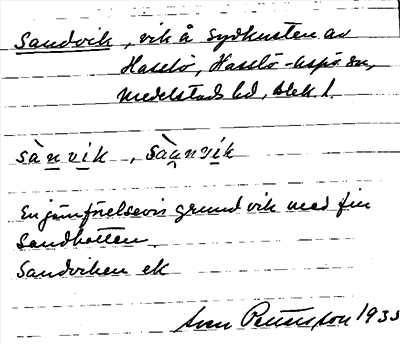 Sandvik, vik å sydkusten av
Hasslö, Hasslö-Aspö sn,
Medelstads hd, Blek l.
sànvik, sàunvik
En jämförelsevis grund vik med fin
Sandbotten.
Sandviken ek
Sven Petersson 1933